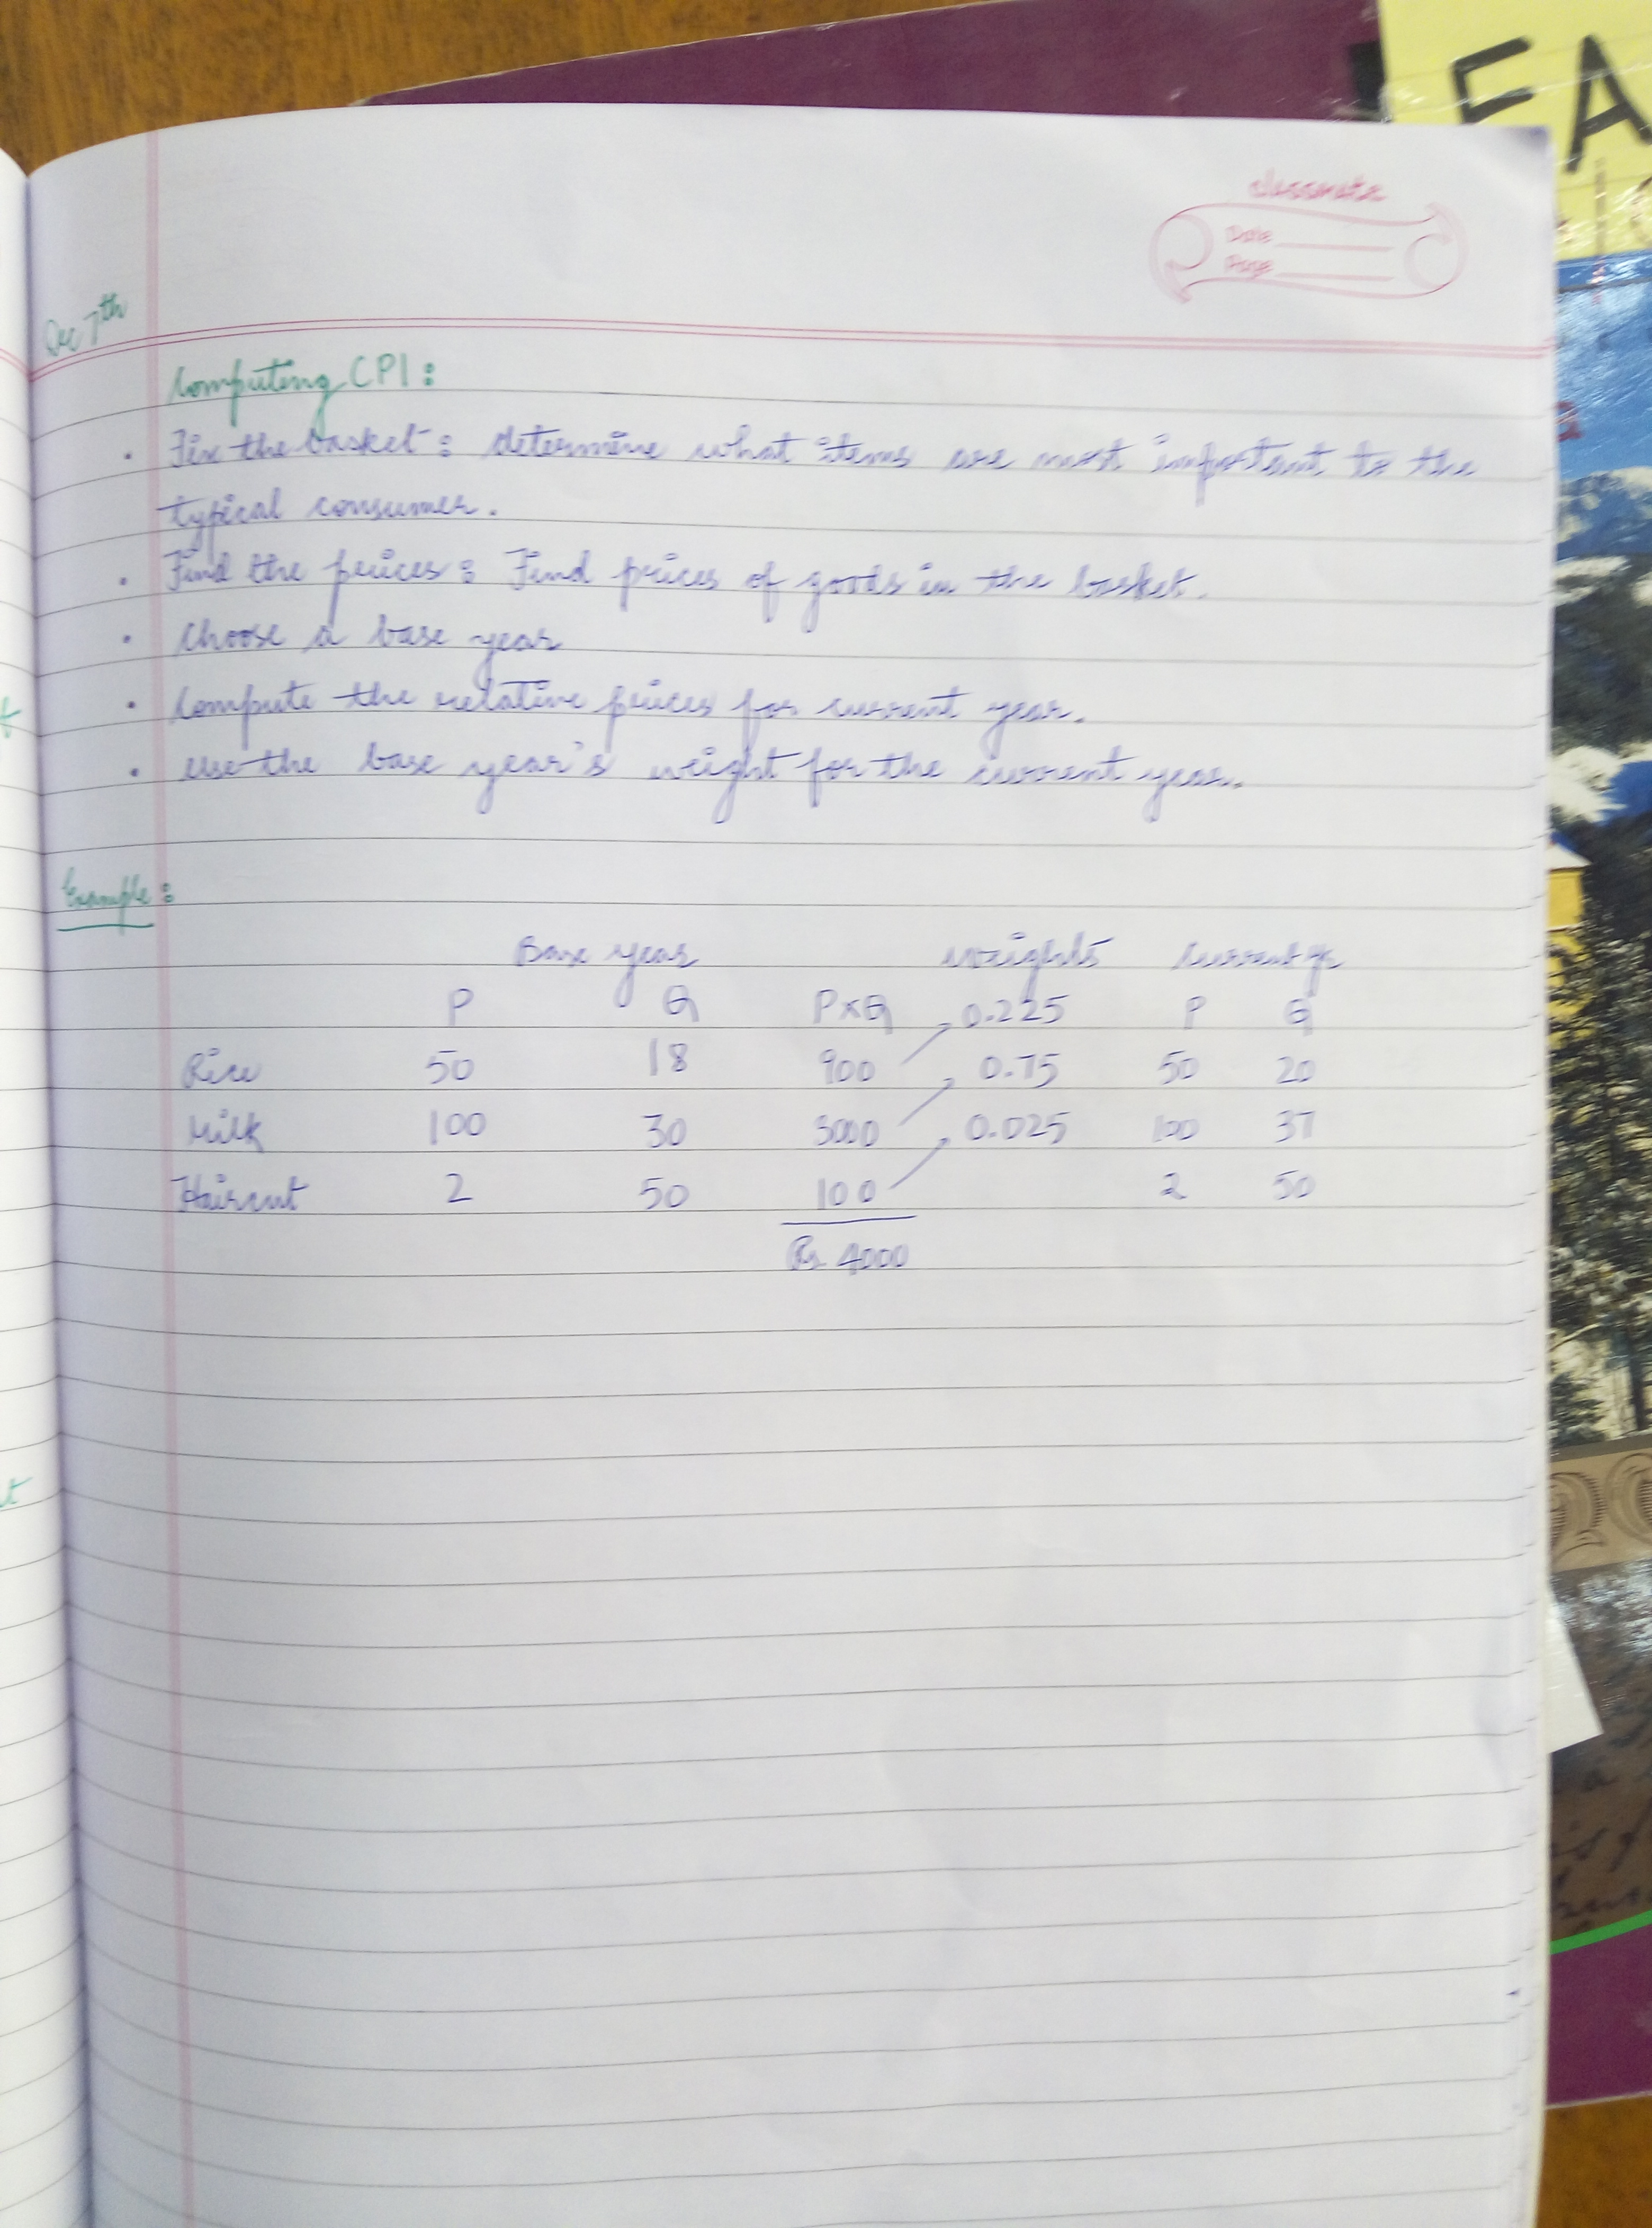 EA
classmate
Date
Page
Dec 7th
Computing CPI :
• Fix the basket : determine what items are most important to the
typical consumer.
• Find the prices : Find prices of goods in the basket.
• Choose a base year
• Compute the relative prices for current year.
• Use the base year's weight for the current year.
Example :
Base year weights Current yr
P Q P×Q 0.225 P Q
Rice 50 18 900 0.75 50 20
Milk 100 30 3000 0.025 100 37
Haircut 2 50 100 2 50
Rs. 4000